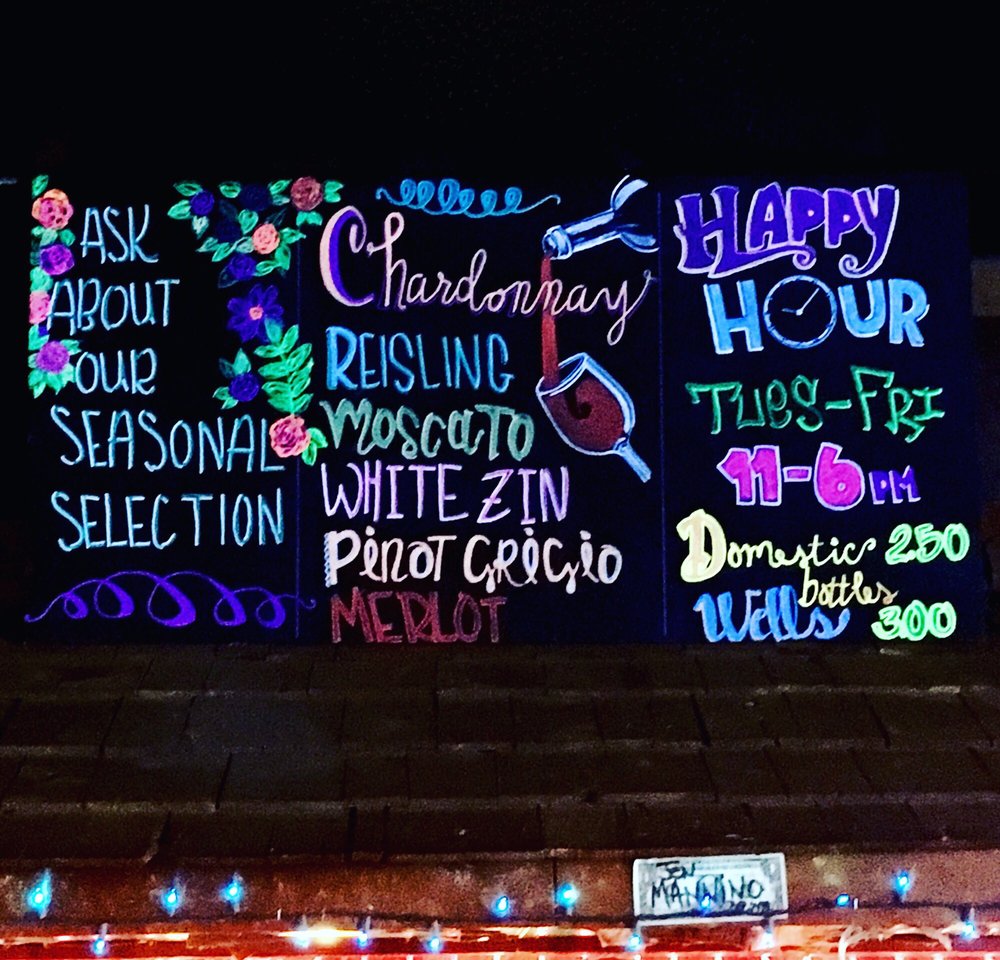 ASK
ABOUT
OUR
SEASONAL
SELECTION
Chardonnay
REISLING
MOSCATO
WHITE ZIN
PINOT GRIGIO
MERLOT
HAPPY
HOUR
TUES-FRI
11-6 PM
Domestic 250
bottles
Wells 300
JEN
MANNINO